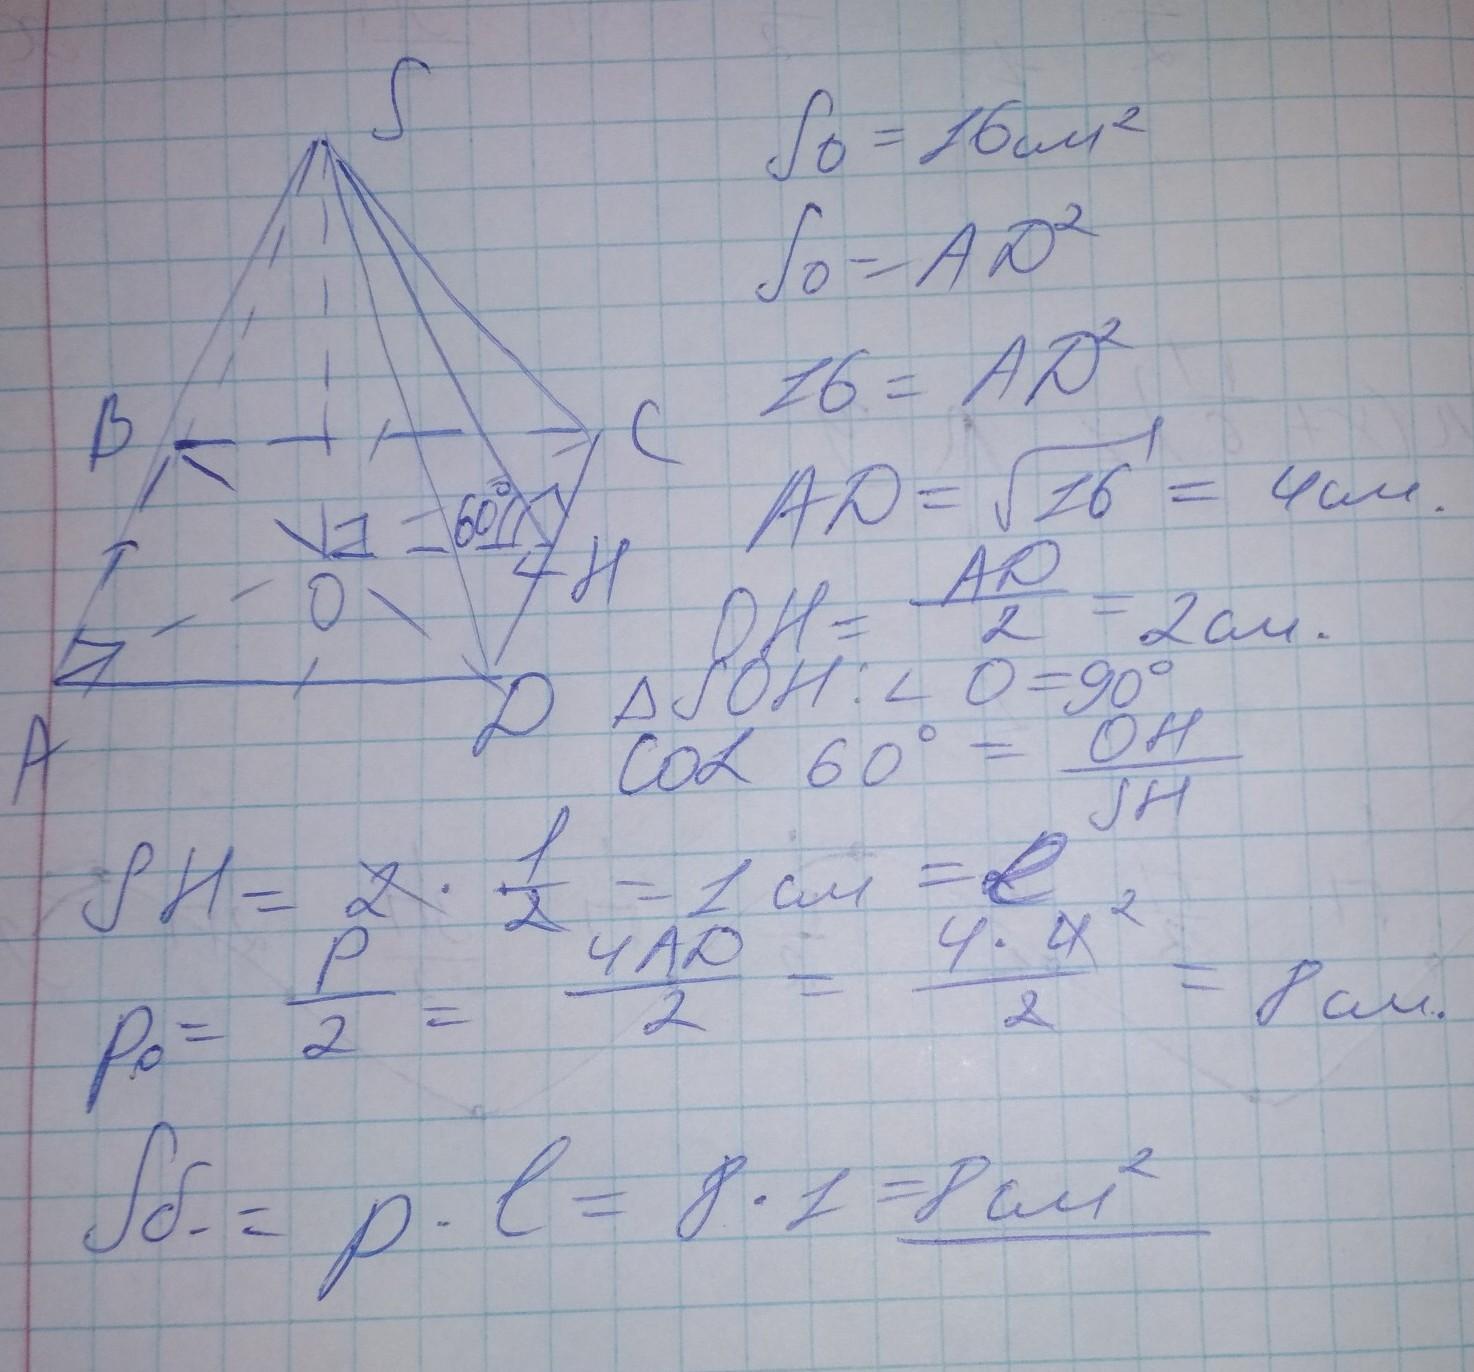 S
B
C
60°
H
O
A
D
Sо = 16см²
Sо = AD²
16 = AD²
AD = √16 = 4см.
OH = AD/2 = 2см.
△SOH: ∠ O = 90°
cos 60° = OH/SH
SH = 2 · 1/2 = 1 см = l
pо = P/2 = 4AD/2 = 4·4/2 = 8 см.
Sб. = p · l = 8 · 1 = 8 см²